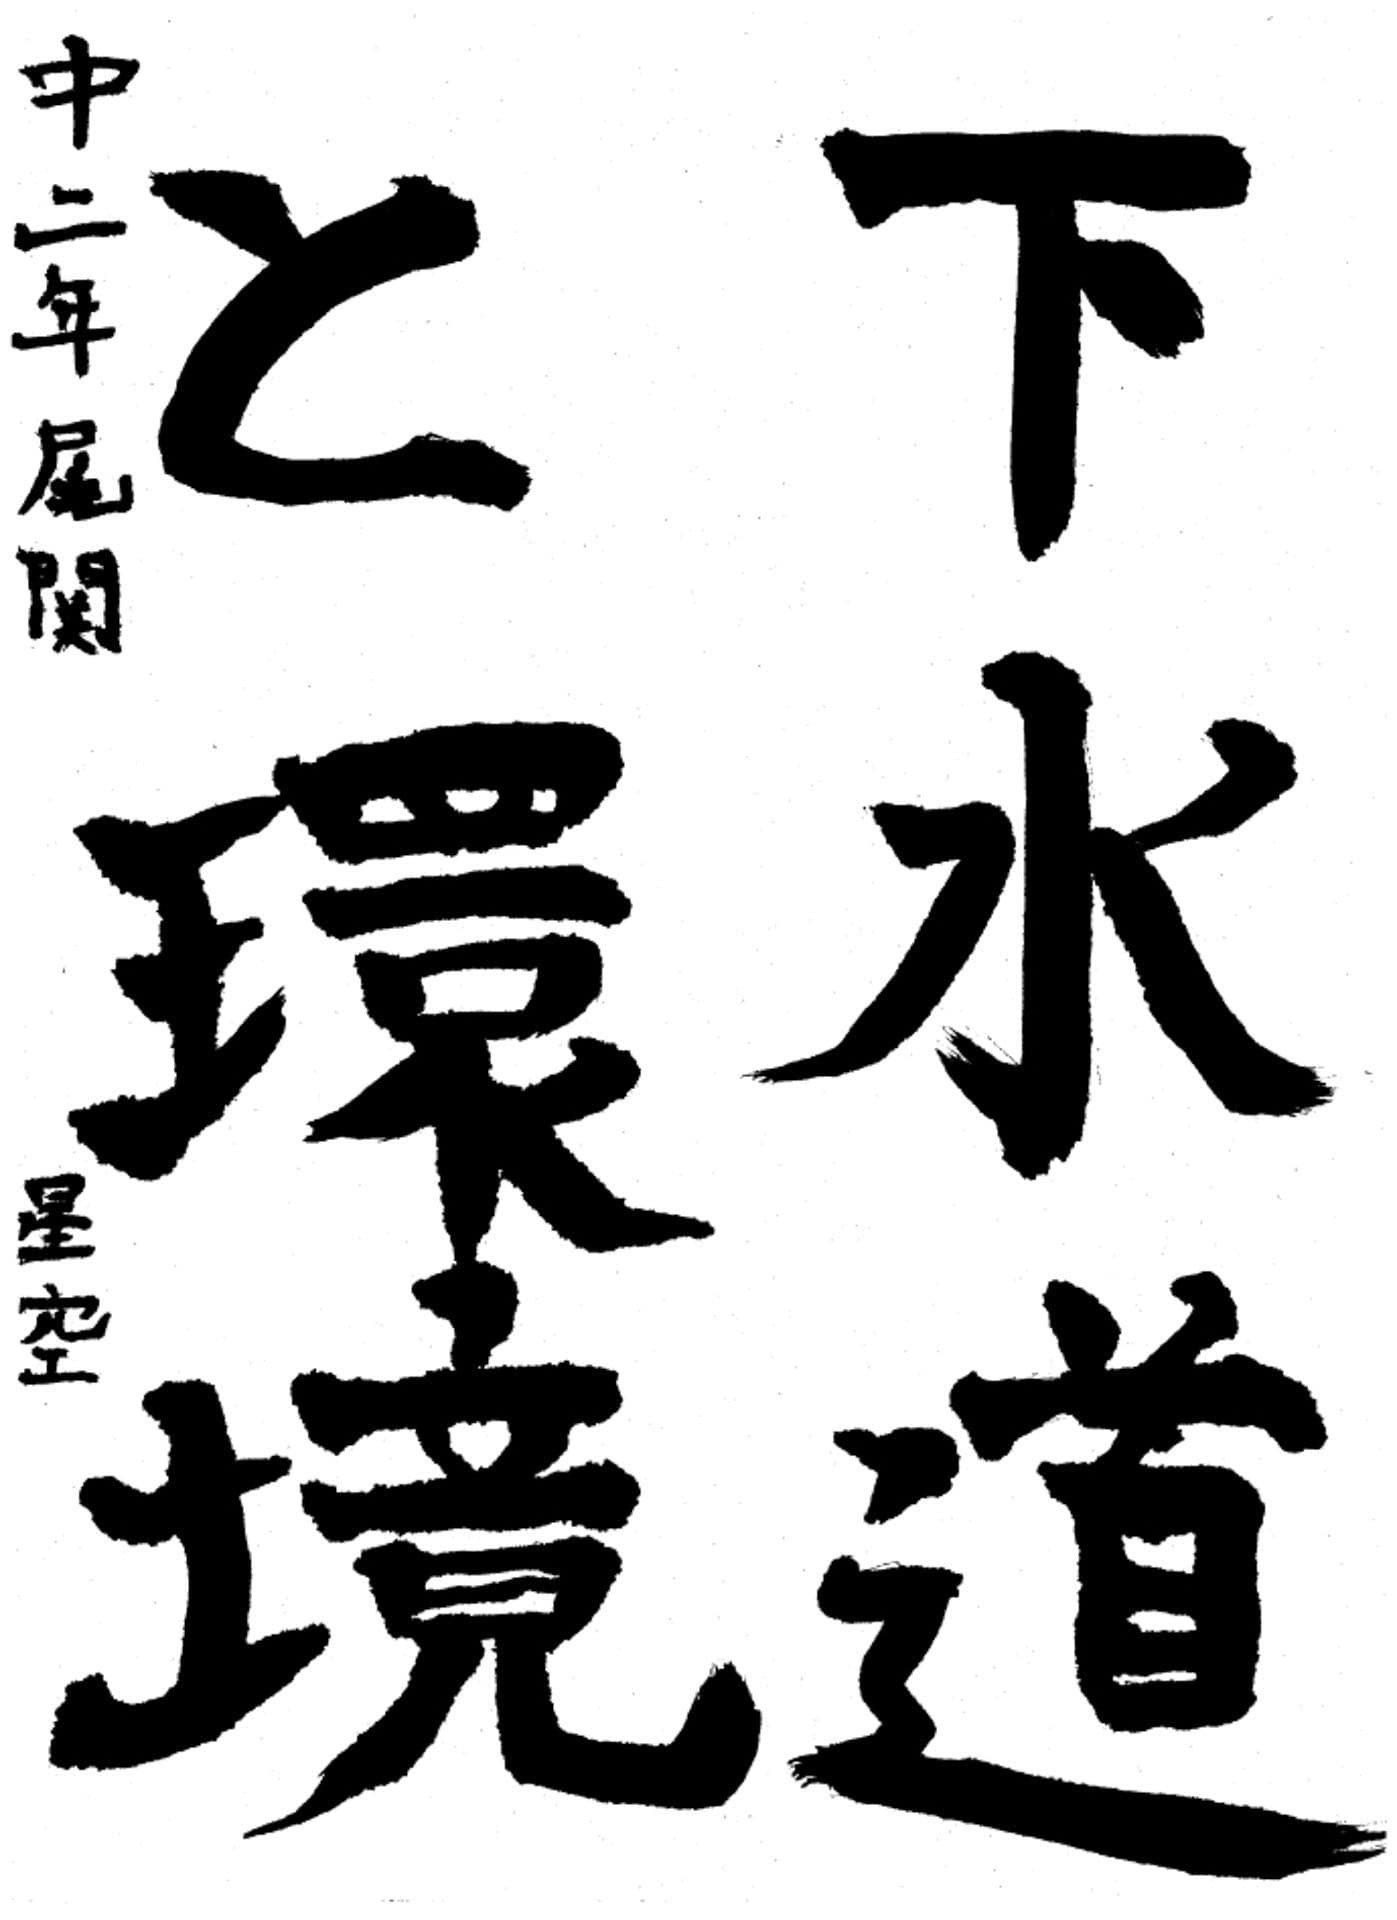 下水道
と環境
中二年 尾関 星空